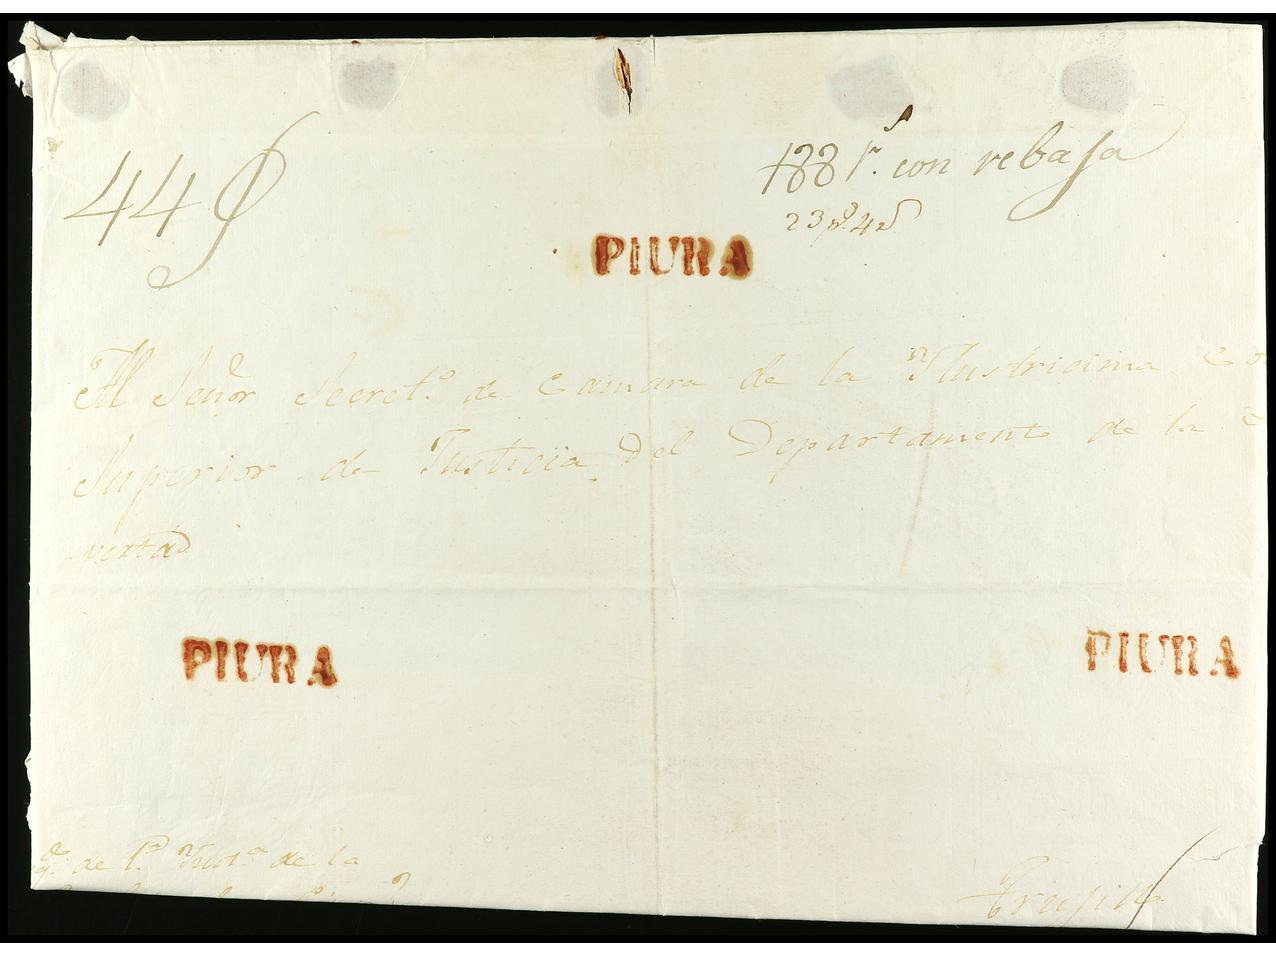 44
188 r.s con rebaja
23 p.s 4 r.s
PIURA
Al Señor Secret.o de Camara de la Ilustricima Co
Superior de Justicia del Departamento de la
vertad
PIURA
PIURA
de 1.a Inst.a de la
Trujillo